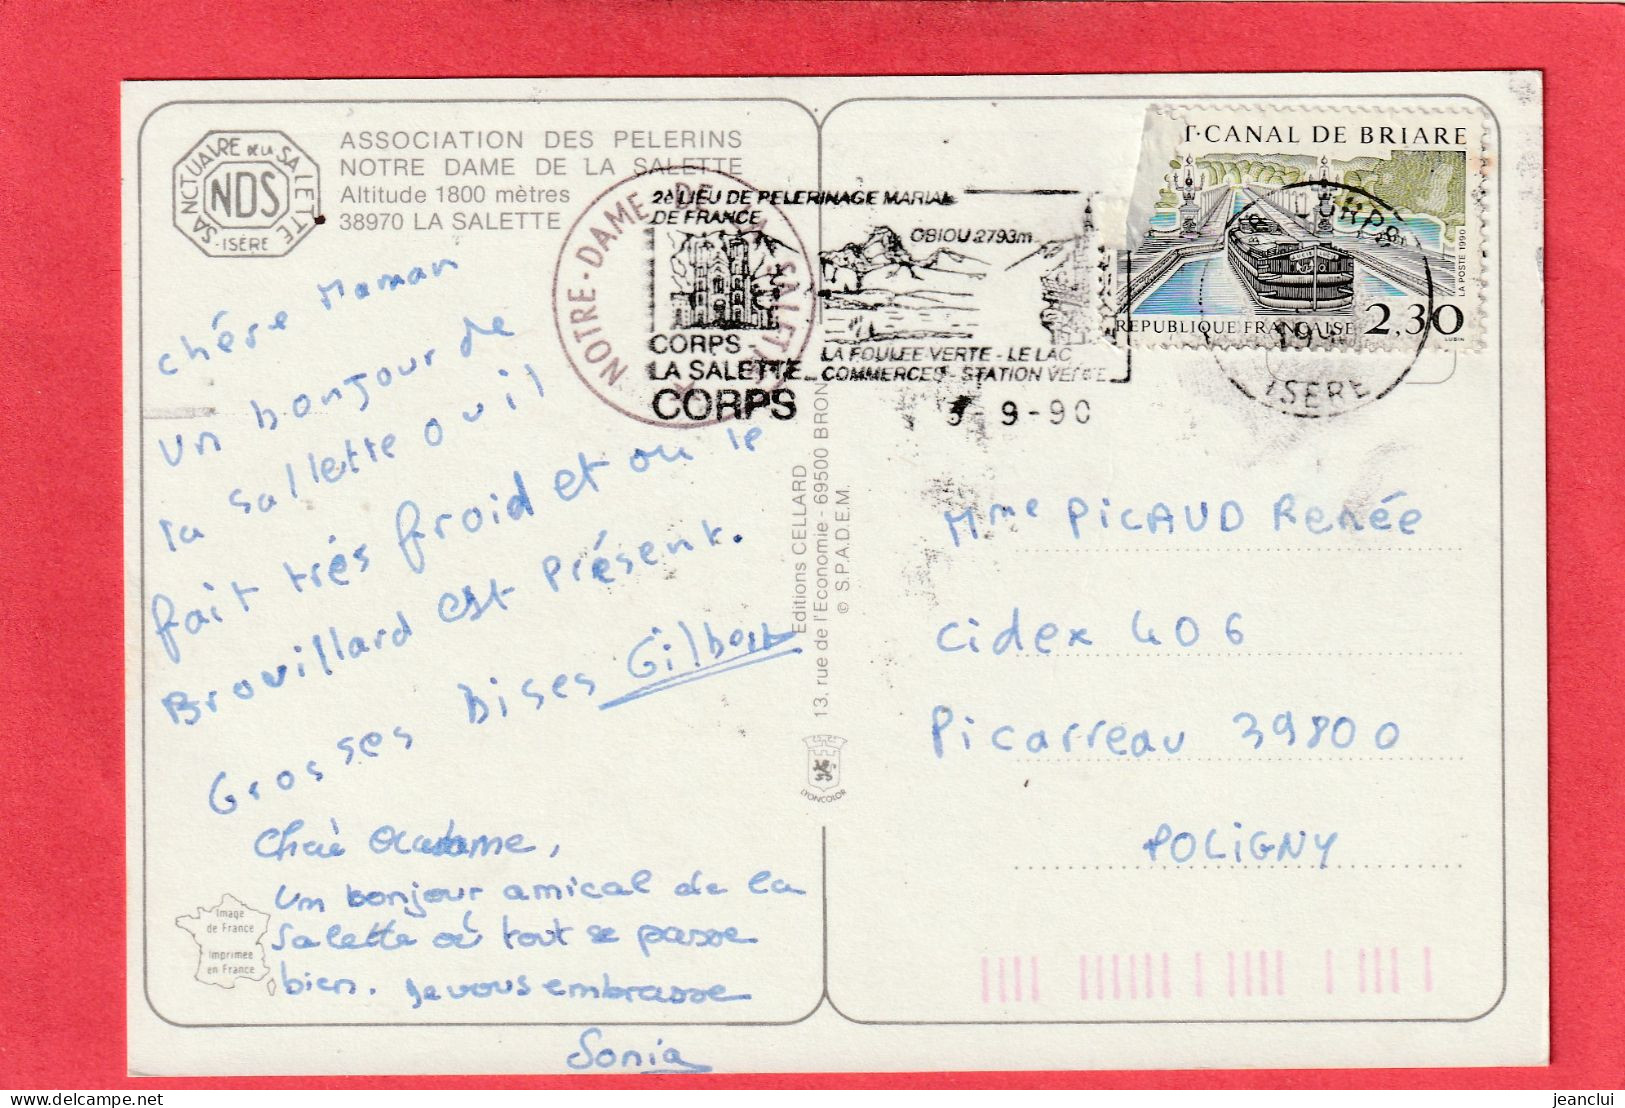 ASSOCIATION DES PELERINS
NOTRE DAME DE LA SALETTE
Altitude 1800 mètres
38970 LA SALETTE
SANCTUAIRE DE LA SALETTE
NDS
-ISÈRE-
NOTRE-DAME DE LA SALETTE
2è LIEU DE PELERINAGE MARIAL
DE FRANCE
OBIOU 2793m
CORPS -
LA SALETTE
CORPS
LA FOULEE VERTE - LE LAC
COMMERCES - STATION VERTE
9-90
CORPS
ISERE
T-CANAL DE BRIARE
LA POSTE 1990
REPUBLIQUE FRANÇAISE 2,30
LUBIN
chére Maman
un bonjour de
la sallette ou il
fait trés froid et ou le
Brouillard est présent.
Grosses bises Gilbert
Chère Madame,
Un bonjour amical de la
Salette où tout se passe
bien. Je vous embrasse
Sonia
Image
de France
Imprimée
en France
Editions CELLARD
13, rue de l'Economie - 69500 BRON
© S.P.A.D.E.M.
LYONCOLOR
Mme PICAUD Renée
Cidex 406
Picarreau 39800
POLIGNY
delcampe.net
jeanclui